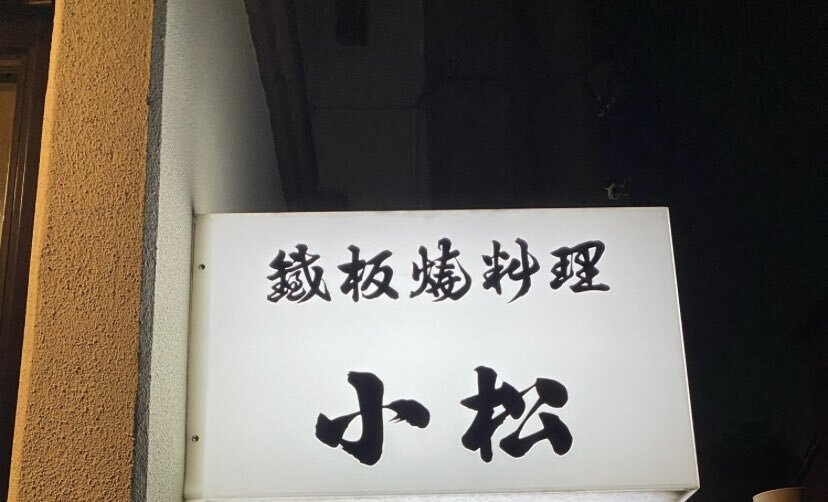 鐵板燒料理
小松